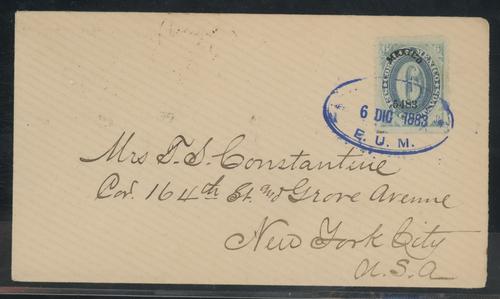 MEXICO
6
5483
6 DIC 1883
E. U. M.
Mrs T. S. Constantine
Cor. 164th St. and Grove Avenue
New York City
U.S.A